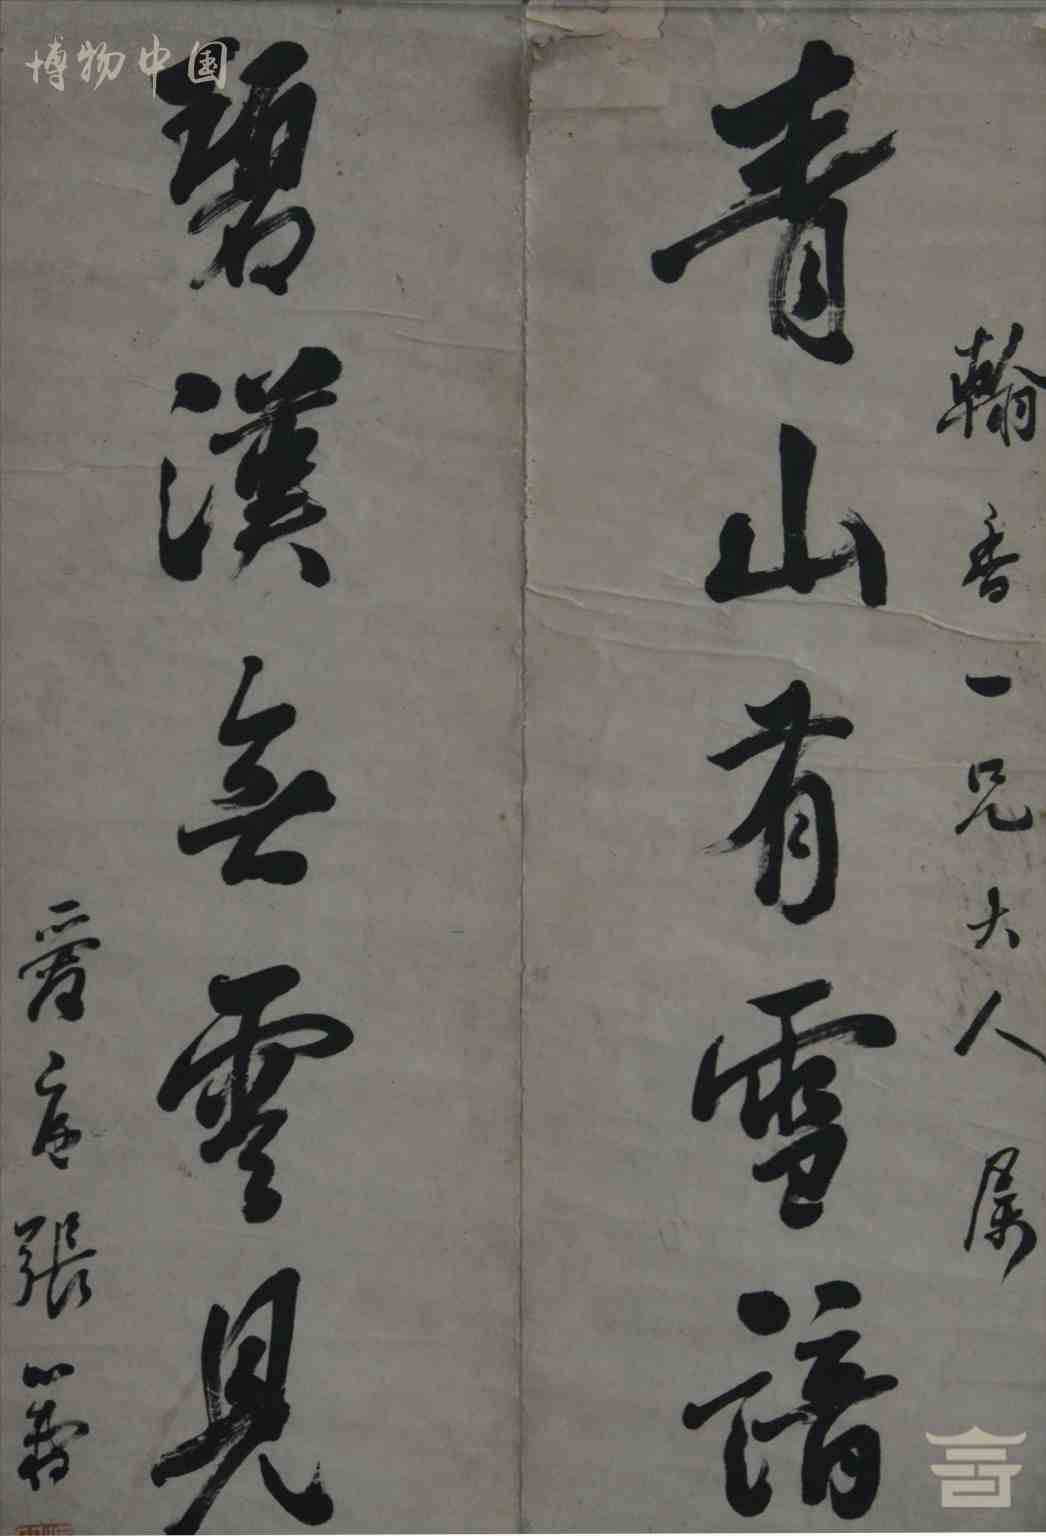 博物中国
翰香一兄大人属
青山有雪諳
碧漢無雲見
張